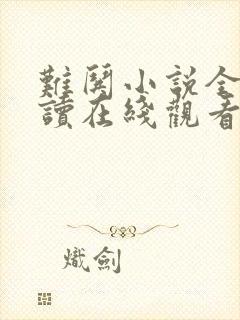 難鬥小說全
讀在綫觀看
熾劍